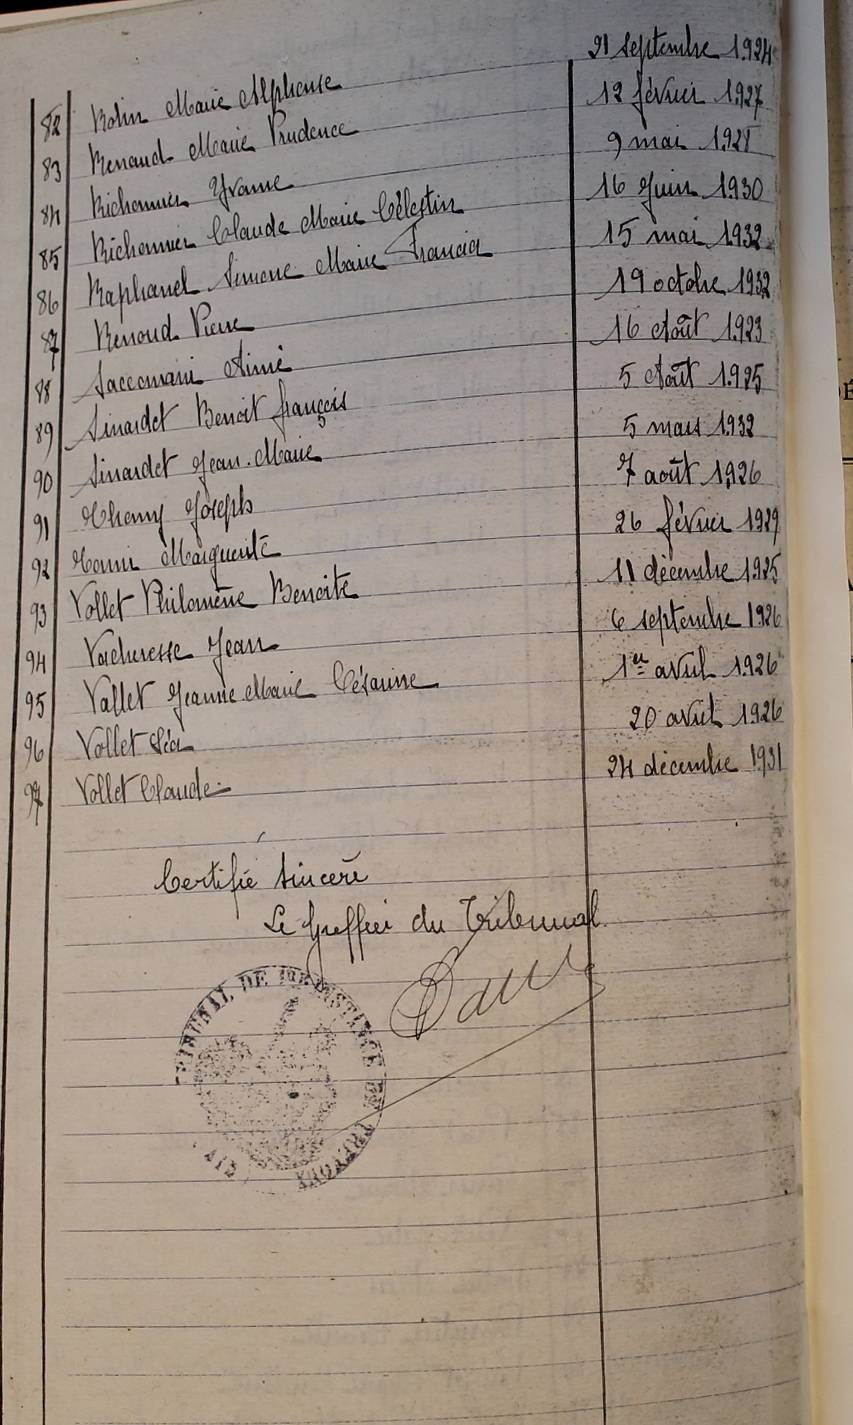 82 Robin Marie Alphonse 21 septembre 1924
83 Renaud Marie Prudence 12 février 1927
84 Richonnier Yvonne 9 mai 1928
85 Richonnier Claude Marie Célestin 16 Juin 1930
86 Raphanel Simone Marie Francia 15 mai 1932
87 Renoud Pierre 19 octobre 1932
88 Saccomani Aimé 16 Août 1923
89 Sinardet Benoît françois 5 Août 1925
90 Sinardet Jean-Marie 5 mars 1932
91 Thomy Joseph 7 août 1926
92 Marguerite 26 février 1929
93 Vollet Philomène Benoite 11 décembre 1925
94 Vacheresse Jean 6 septembre 1926
95 Vallet Jeanne Marie Césarine 1er avril 1926
96 Vollet Léa 20 avril 1926
97 Vollet Claude 24 décembre 1931
Certifié Sincère
Le Greffier du Tribunal
TRIBUNAL DE 1ère INSTANCE DE TRÉVOUX
AIN